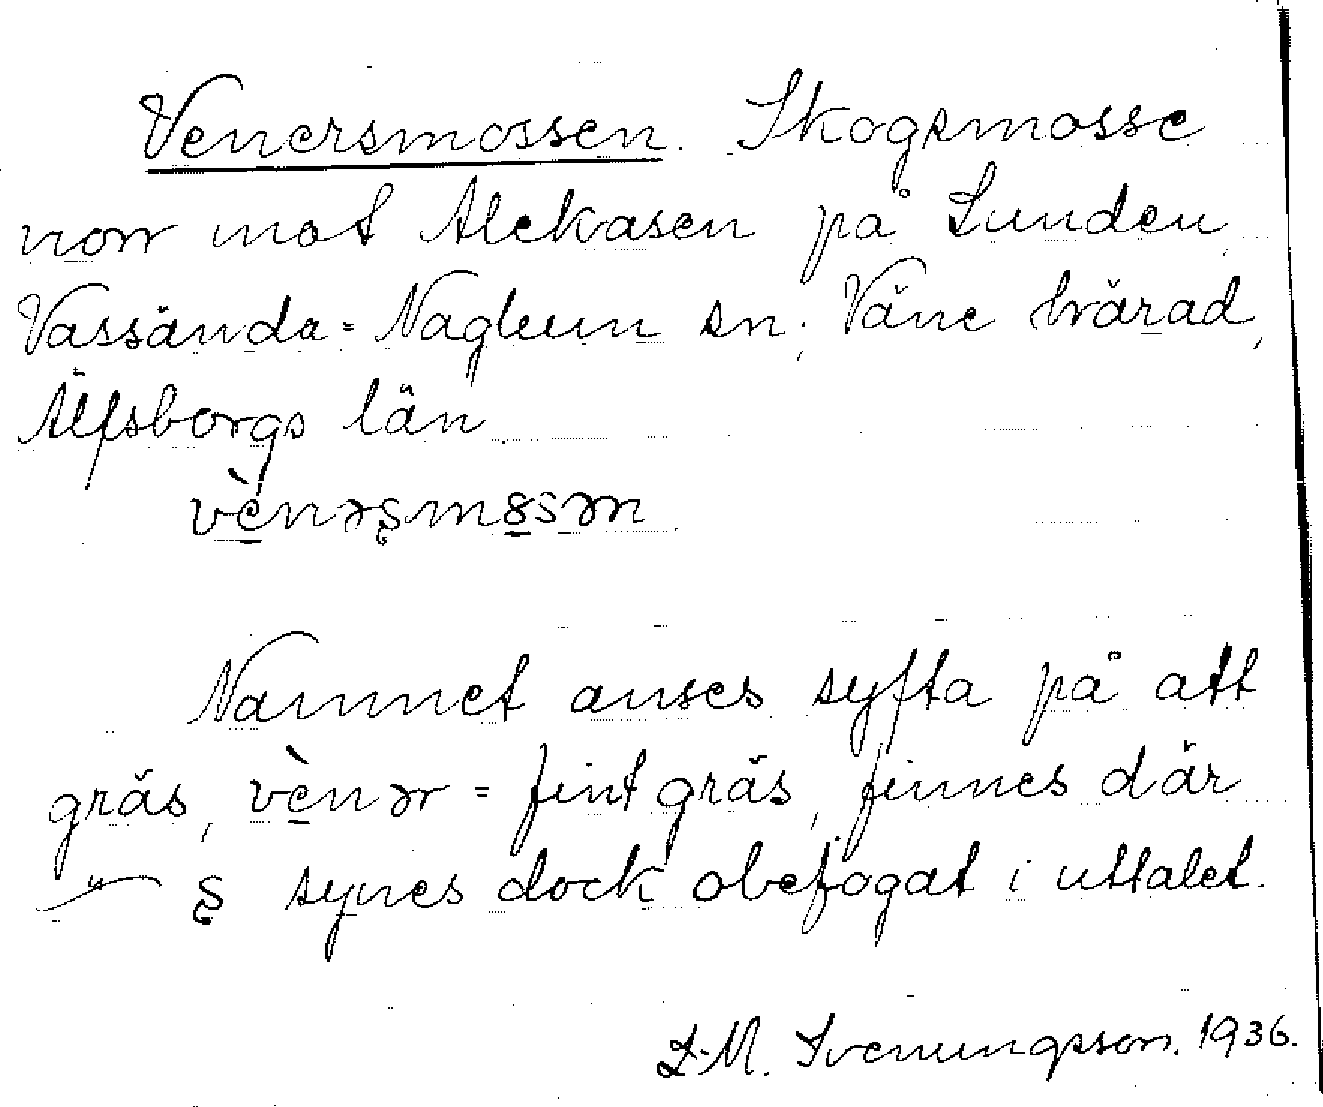 Venersmossen. Skogsmosse
norr mot Alekasen på Lunden
Vassända-Naglum sn, Väne härad,
Älfsborgs län
vènəʂm8sən
Namnet anses syfta på att
gräs, vènər = fint gräs, finnes där
ʂ synes dock obefogat i uttalet.
L.M. Svenungsson. 1936.